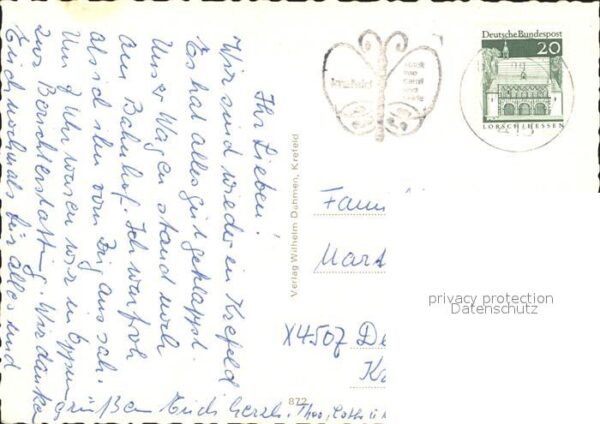 Ihr Lieben!
Wir sind wieder in Krefeld
Es hat alles gut geklappt.
Unser Wagen stand noch
am Bahnhof. Ich war froh
als ich ihn vom Zug aus sah.
Um 7 Uhr waren wir in Oppum
zur Berichterstattung. Wir danken
Euch nochmals für alles und
grüßen Erich, Gerzh. Theo, Lotte u
Verlag Wilhelm Dahmen, Krefeld
872
Deutsche Bundespost
20
LORSCH/HESSEN
Krefeld
Stadt
wie
Samt
und
Seide
415
Fami
Mart
X4507 De
Ka
privacy protection
Datenschutz